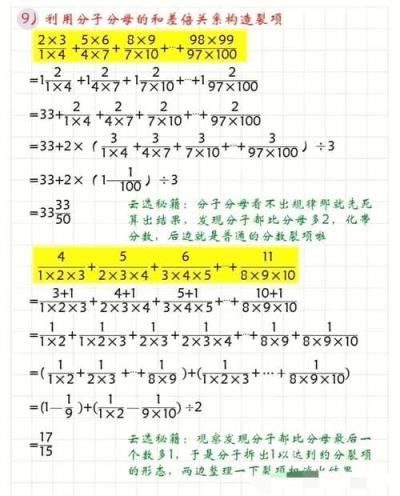 9）利用分子分母的和差倍关系构造裂项
2×3/1×4+5×6/4×7+8×9/7×10+…+98×99/97×100
=1 2/1×4+1 2/4×7+1 2/7×10+…+1 2/97×100
=33+2/1×4+2/4×7+2/7×10+…+2/97×100
=33+2×（3/1×4+3/4×7+3/7×10+…+3/97×100）÷3
=33+2×（1-1/100）÷3
=33 33/50
云逸秘籍：分子分母看不出规律那就先死
算出结果，发现分子都比分母多2，化带
分数，后边就是普通的分数裂项啦
4/1×2×3+5/2×3×4+6/3×4×5+…+11/8×9×10
=3+1/1×2×3+4+1/2×3×4+5+1/3×4×5+…+10+1/8×9×10
=1/1×2+1/1×2×3+1/2×3+1/2×3×4+…+1/8×9+1/8×9×10
=(1/1×2+1/2×3+…+1/8×9)+(1/1×2×3+…+1/8×9×10)
=(1-1/9)+(1/1×2-1/9×10)÷2
=17/15
云逸秘籍：观察发现分子都比分母最后一
个数多1，于是分子拆出1以达到约分裂项
的形态，两边整理一下裂项